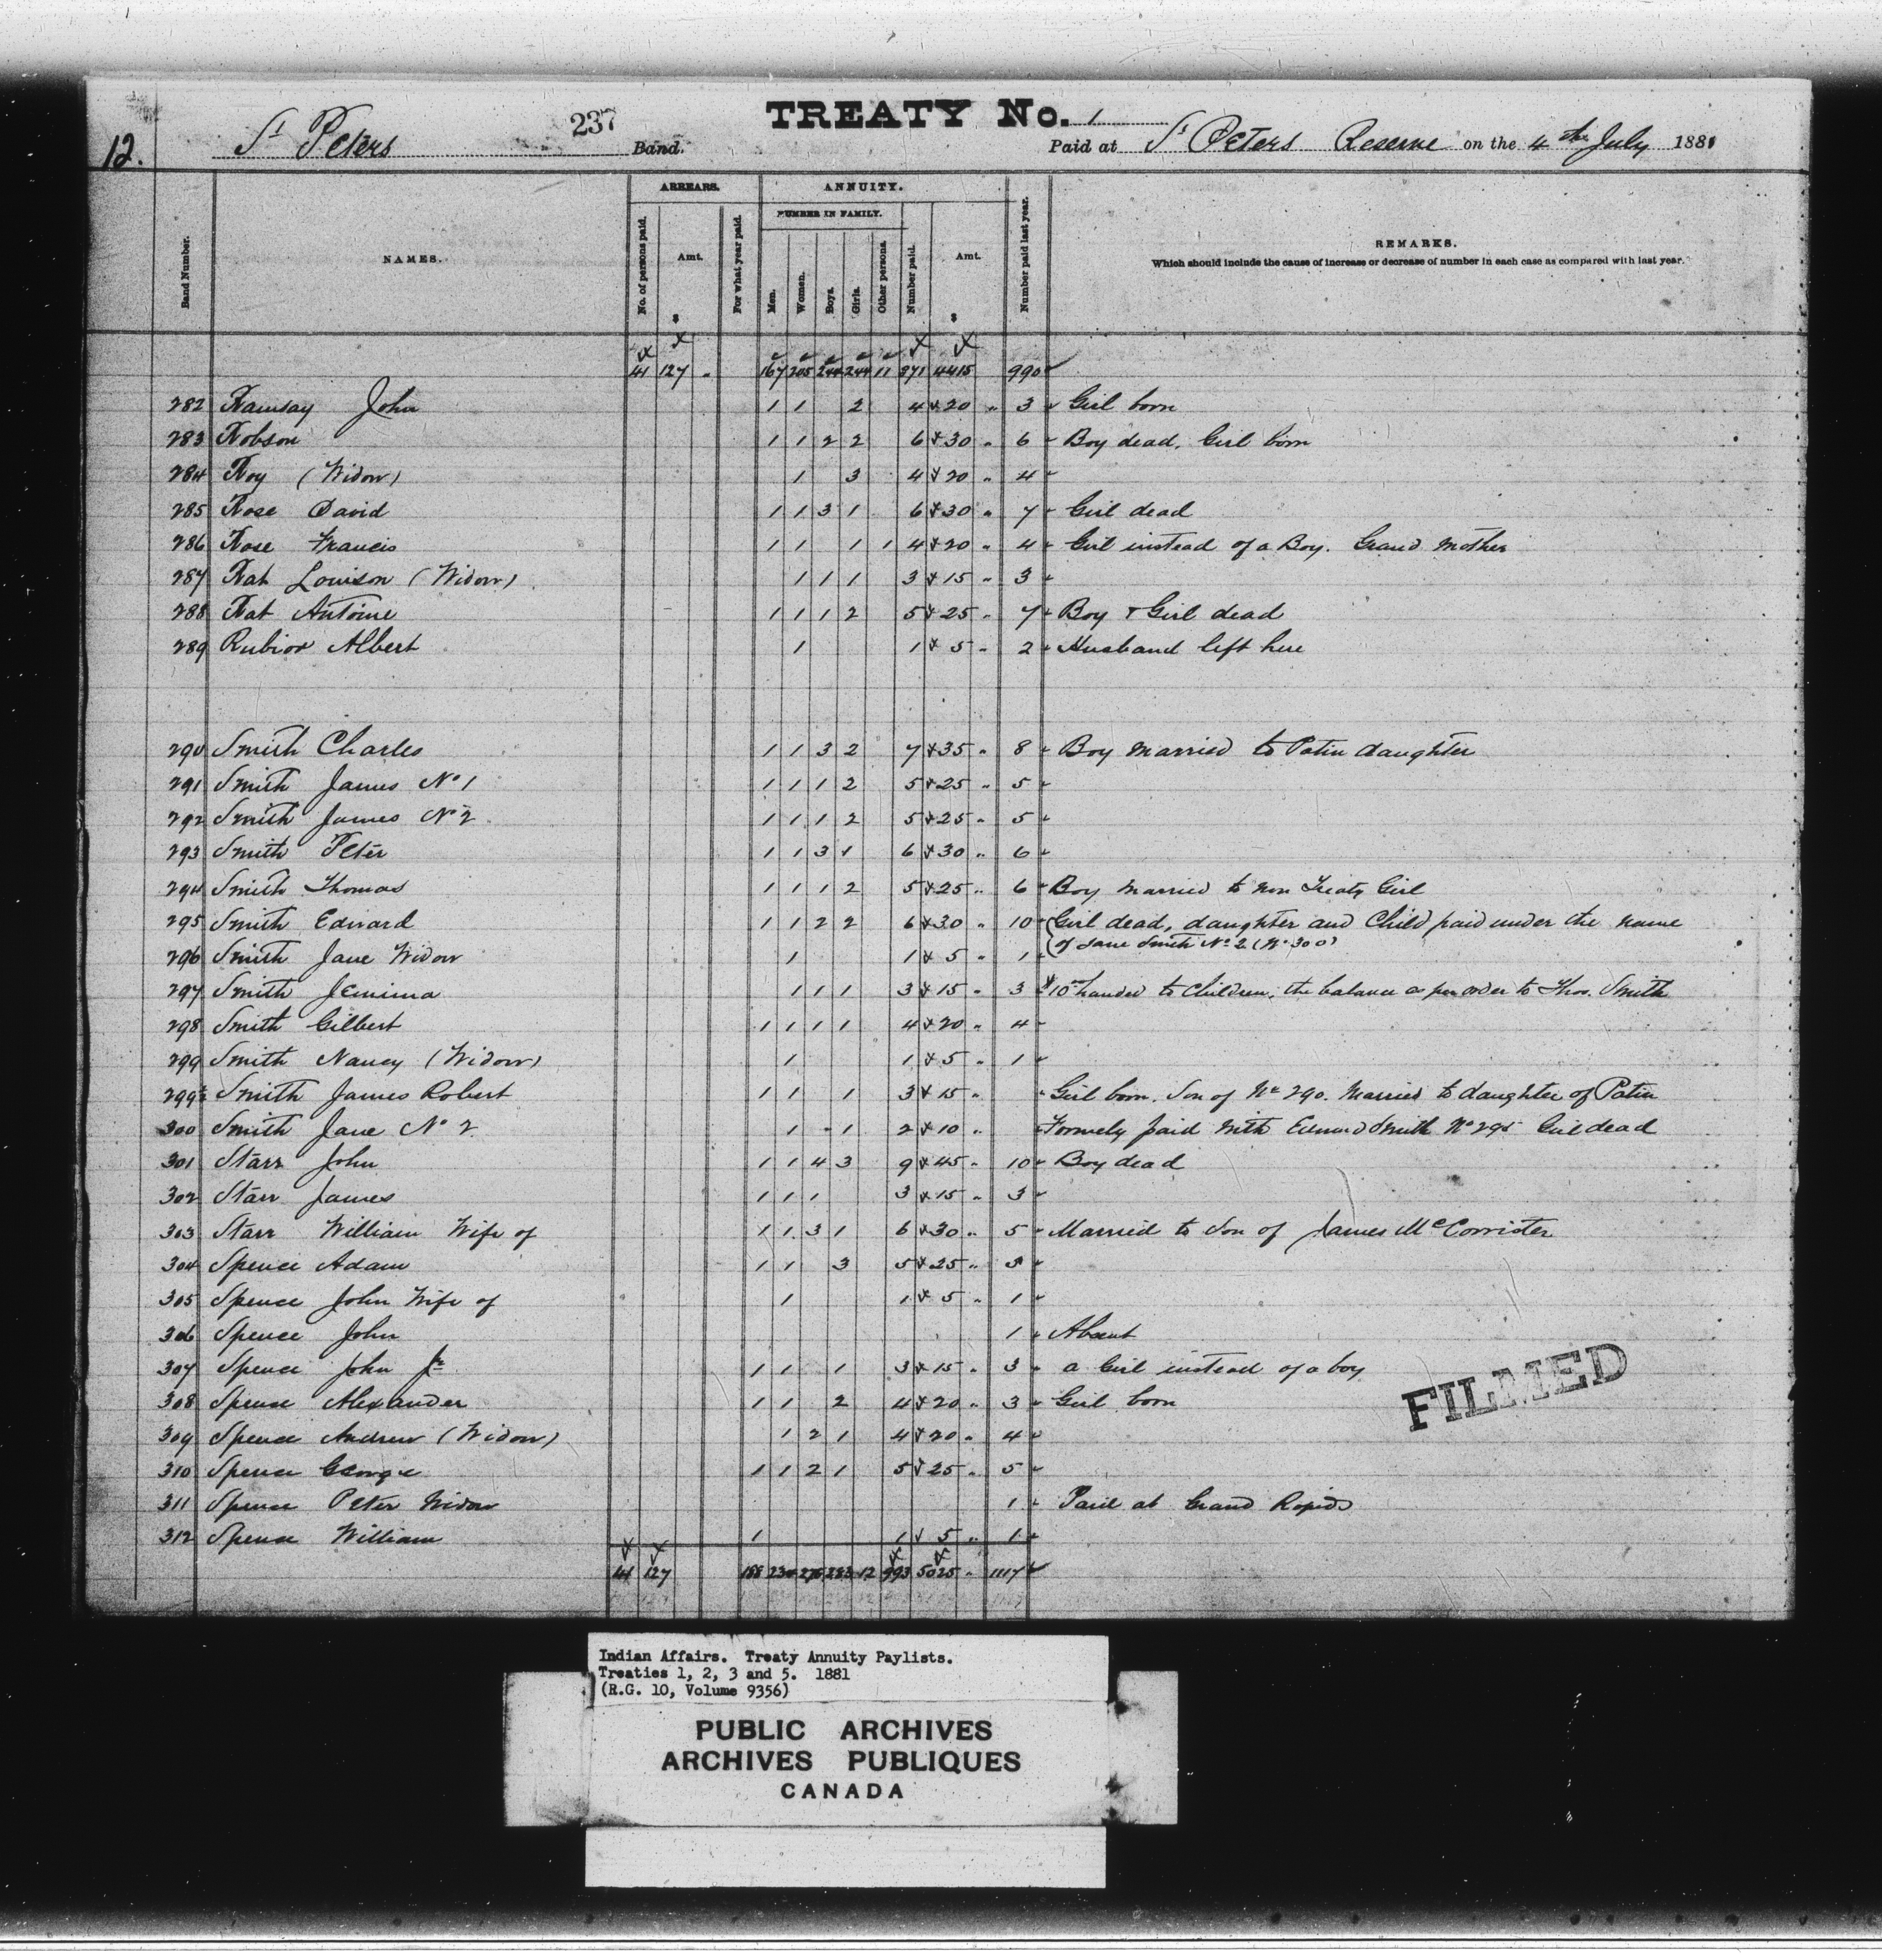 12.
St Peters 237 Band.
TREATY No. 1
Paid at St Peters Reserve on the 4th July 1881
Band Number.
NAMES.
ARREARS.
No. of persons paid.
Amt. $
For what year paid.
ANNUITY.
NUMBER IN FAMILY.
Men.
Women.
Boys.
Girls.
Other persons.
Number paid.
Amt. $
Number paid last year.
REMARKS.
Which should include the cause of increase or decrease of number in each case as compared with last year.
41 127 " 167 205 244 244 11 871 4415 990
282 Ramsay John 1 1 2 4 20 " 3 Girl born
283 Robson 1 1 2 2 6 30 " 6 Boy dead, Girl born
284 Roy (Widow) 1 3 4 20 " 4
285 Rose David 1 1 3 1 6 30 " 7 Girl dead
286 Rose Francis 1 1 1 1 4 20 " 4 Girl instead of a Boy. Grand Mother
287 Rat Louison (Widow) 1 1 1 3 15 " 3
288 Rat Antoine 1 1 1 2 5 25 " 7 Boy & Girl dead
289 Albert 1 1 5 " 2 Husband left here
290 Smith Charles 1 1 3 2 7 35 " 8 Boy married to Patin daughter
291 Smith James No 1 1 1 1 2 5 25 " 5
292 Smith James No 2 1 1 1 2 5 25 " 5
293 Smith Peter 1 1 3 1 6 30 " 6
294 Smith Thomas 1 1 1 2 5 25 " 6 Boy married to non Treaty Girl
295 Smith Edward 1 1 2 2 6 30 " 10 Girl dead, daughter and Child paid under the name
of Jane Smith No. 2 (No. 300)
296 Smith Jane Widow 1 1 5 " 1
297 Smith Jemima 1 1 1 3 15 " 3 $10 handed to children, the balance as per order to Thos. Smith
298 Smith Gilbert 1 1 1 1 4 20 " 4
299 Smith Nancy (Widow) 1 1 5 " 1
299½ Smith James Robert 1 1 1 3 15 " Girl born. Son of No 290. Married to daughter of Patin
300 Smith Jane No 2 1 1 2 10 " Formely paid with Edward Smith No 295 Girl dead
301 Starr John 1 1 4 3 9 45 " 10 Boy dead
302 Starr James 1 1 1 3 15 " 3
303 Starr William Wife of 1 1 3 1 6 30 " 5 Married to Son of James McCorrister
304 Spence Adam 1 1 3 5 25 " 5
305 Spence John Wife of 1 1 5 " 1
306 Spence John 1 Absent
307 Spence John Jr 1 1 1 3 15 " 3 a Girl instead of a boy
308 Spence Alexander 1 1 2 4 20 " 3 Girl born
309 Spence Andrew (Widow) 1 2 1 4 20 " 4
310 Spence George 1 1 2 1 5 25 " 5
311 Spence Peter Widow 1 Paid at Grand Rapids
312 Spence William 1 1 5 " 1
41 127 188 234 276 283 12 993 5025 " 1117
FILMED
Indian Affairs. Treaty Annuity Paylists.
Treaties 1, 2, 3 and 5. 1881
(R.G. 10, Volume 9356)
PUBLIC ARCHIVES
ARCHIVES PUBLIQUES
CANADA